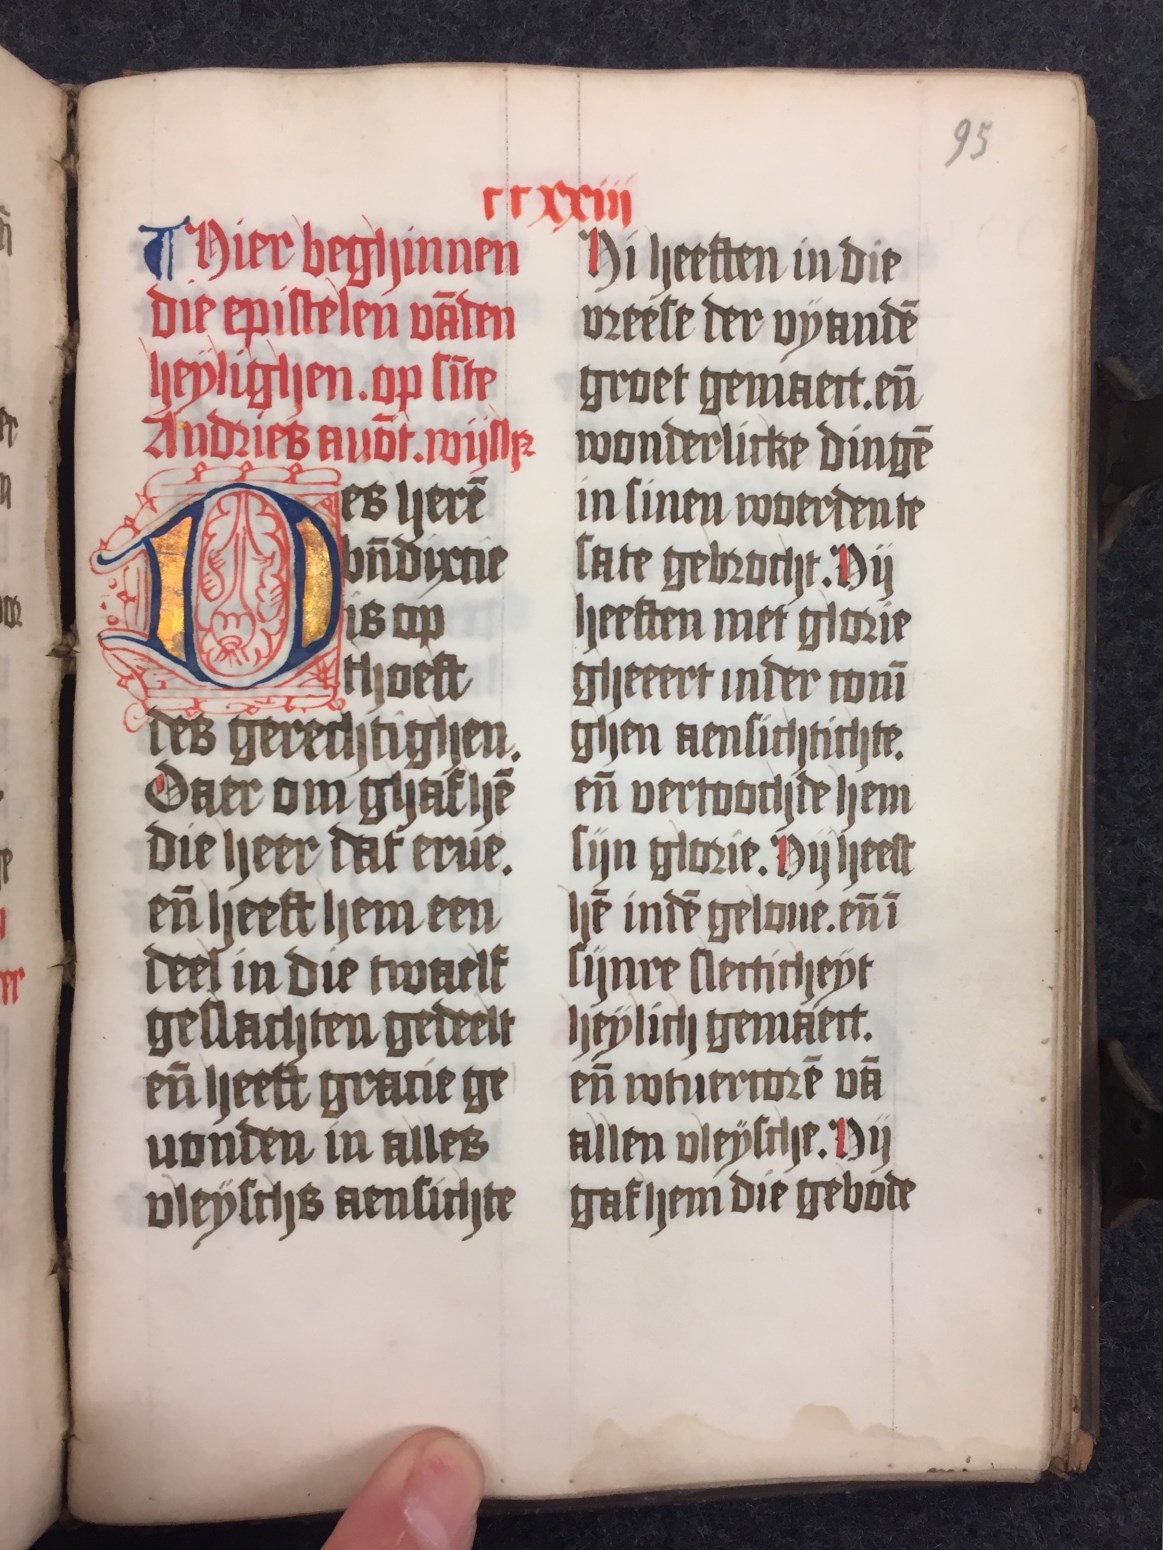 95
ccxxiii
¶ Hier beghinnen
die epistelen vāden
heÿlighen. op sīte
Andries auōt. wijsh͛
Des herē
bn̄dixcie
is op
thoeft
des gerechtighen.
Daer om ghaf hē
die heer dat erue.
en̄ heeft hem een
deel in die twaelf
geslachten gedeelt
en̄ heeft gracie ge
uonden in alles
vleÿschs aensichte
Hi heeften in die
vreese der vÿandē
groet gemaect. en̄
wonderlicke dingē
in sinen woerden te
sate gebrocht. Hij
heeften met glorie
gheeert in der conī
ghen aensichtichte.
en̄ vertoochde hem
sijn glorie. Hij heeft
hē in dē geloue. en̄ ī
sijnre slecticheÿt
heÿlich gemaect.
en̄ wtuercorē vā
allen vleÿsche. Hij
gaf hem die gebode